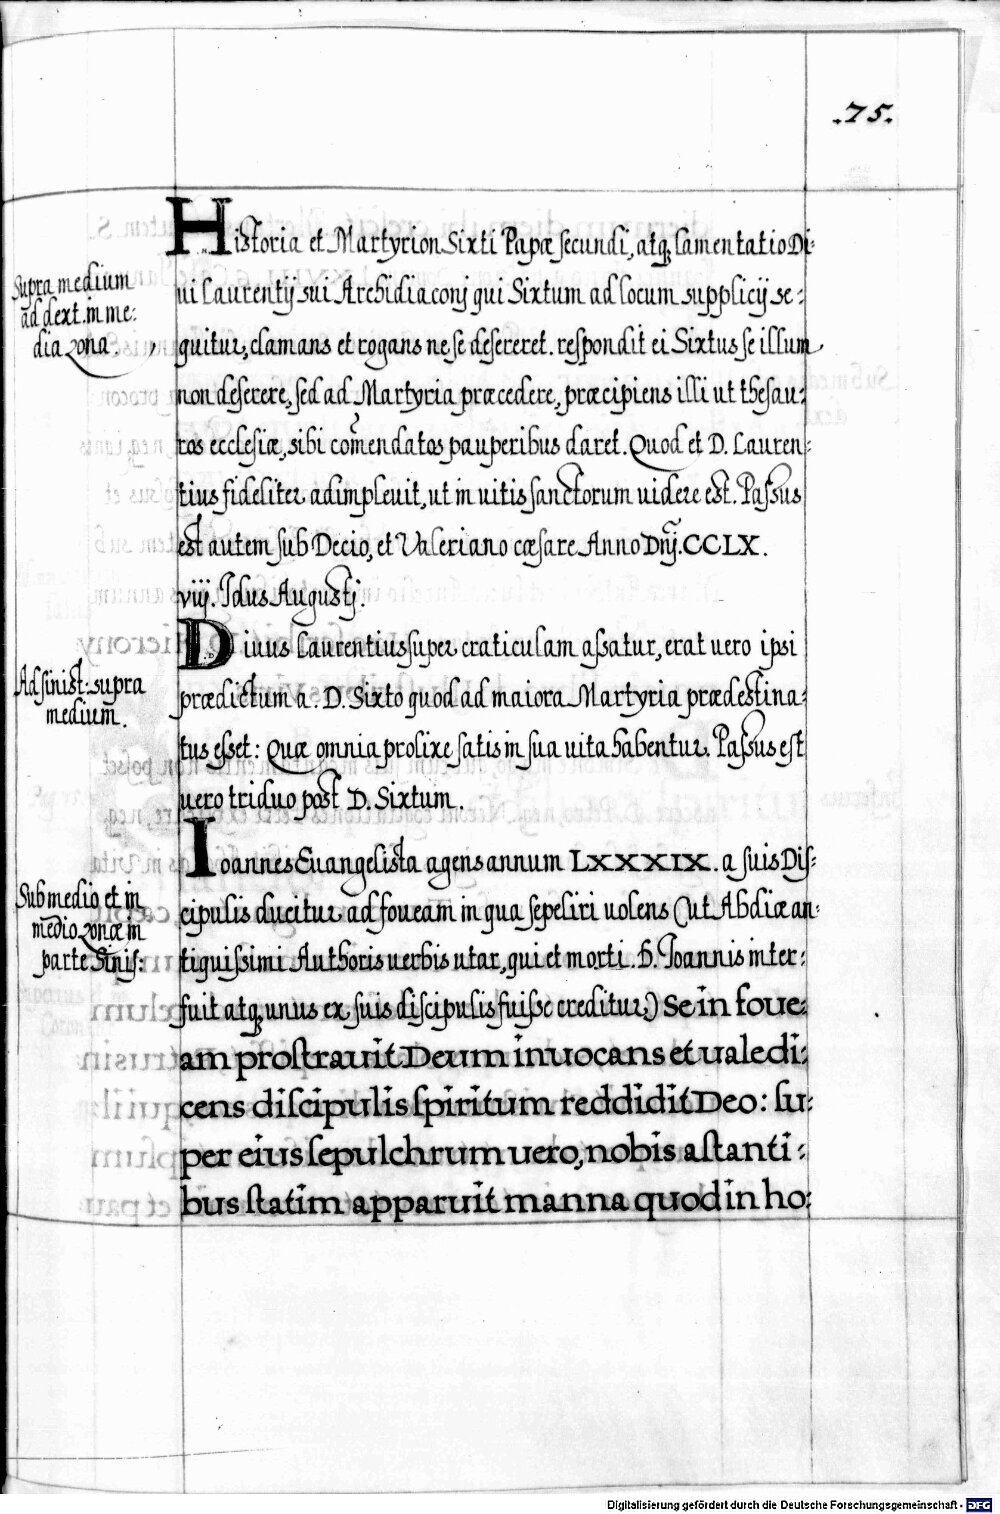 .75.
Historia et Martyrion Sixti Papæ secundi, atq; lamentatio Di:
Supra medium
ad dext. in me:
dia zona.
ui Laurentij sui Archidiaconj qui Sixtum ad locum supplicij se:
quitur, clamans et rogans ne se desereret. respondit ei Sixtus se illum
non deserere, sed ad Martyria præcedere, præcipiens illi ut thesau:
ros ecclesiæ, sibi com̃endatos pauperibus daret. Quod et D. Lauren:
tius fideliter adimpleuit, ut in uitis sanctorum uidere est. Passus
est autem sub Decio, et Valeriano cæsare Anno Dñj. CCLX.
viij. Idus Augustj.
Diuus Laurentius super craticulam assatur, erat uero ipsi
Ad sinist: supra
medium.
prædictum a. D. Sixto quod ad maiora Martyria prædestina:
tus esset: Quæ omnia prolixe satis in sua uita habentur. Passus est
uero triduo post D. Sixtum.
Ioannes Euangelista agens annum LXXXIX. a suis Dis:
Sub medio et in
medio zonæ in
parte Sinis:
cipulis ducitur ad foueam in qua sepeliri uolens (ut Abdiæ an:
tiquissimi Authoris uerbis utar, qui et morti. b. Ioannis inter:
fuit atq; unus ex suis discipulis fuisse creditur;) Se in foue:
am prostrauit Deum inuocans et ualedi:
cens discipulis spiritum reddidit Deo: su:
per eius sepulchrum uero, nobis astanti:
bus statim apparuit manna quod in ho:
Digitalisierung gefördert durch die Deutsche Forschungsgemeinschaft - DFG